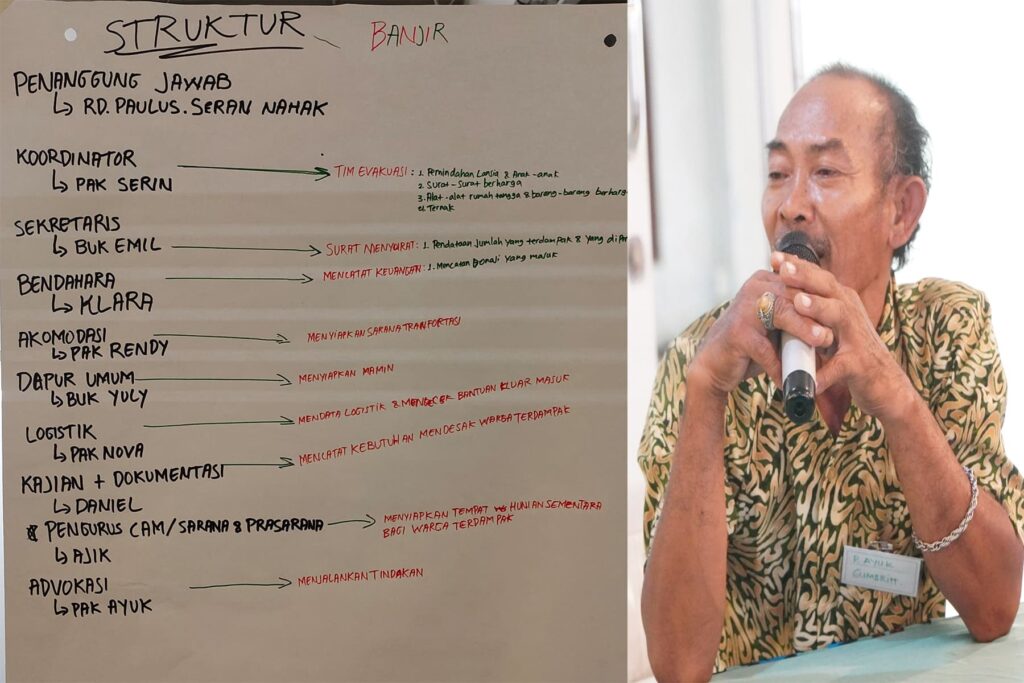 STRUKTUR BANJIR
PENANGGUNG JAWAB
↳ RD. PAULUS. SERAN NAHAK
KOORDINATOR → TIM EVAKUASI: 1. Pemindahan Lansia & Anak-anak
↳ PAK SERIN 2. Surat-surat berharga
3. Alat-alat rumah tangga & barang-barang berharga
4. Ternak
SEKRETARIS
↳ BUK EMIL → SURAT MENYURAT: 1. Pendataan jumlah yang terdampak & yang di
BENDAHARA → MENCATAT KEUANGAN: 1. Mencatat Donasi yang masuk
↳ KLARA
AKOMODASI → MENYIAPKAN SARANA TRANFORTASI
↳ PAK RENDY
DAPUR UMUM → MENYIAPKAN MAMIN
↳ BUK YULY
LOGISTIK → MENDATA LOGISTIK & MENGECEK BANTUAN KLUAR MASUK
↳ PAK NOVA
KAJIAN + DOKUMENTASI → MENCATAT KEBUTUHAN MENDESAK WARGA TERDAMPAK
↳ DANIEL
PENGURUS CAM/SARANA & PRASARANA → MENYIAPKAN TEMPAT HUNIAN SEMENTARA
BAGI WARGA TERDAMPAK
↳ AJIK
ADVOKASI → MENJALANKAN TINDAKAN
↳ PAK AYUK
P. AYUK